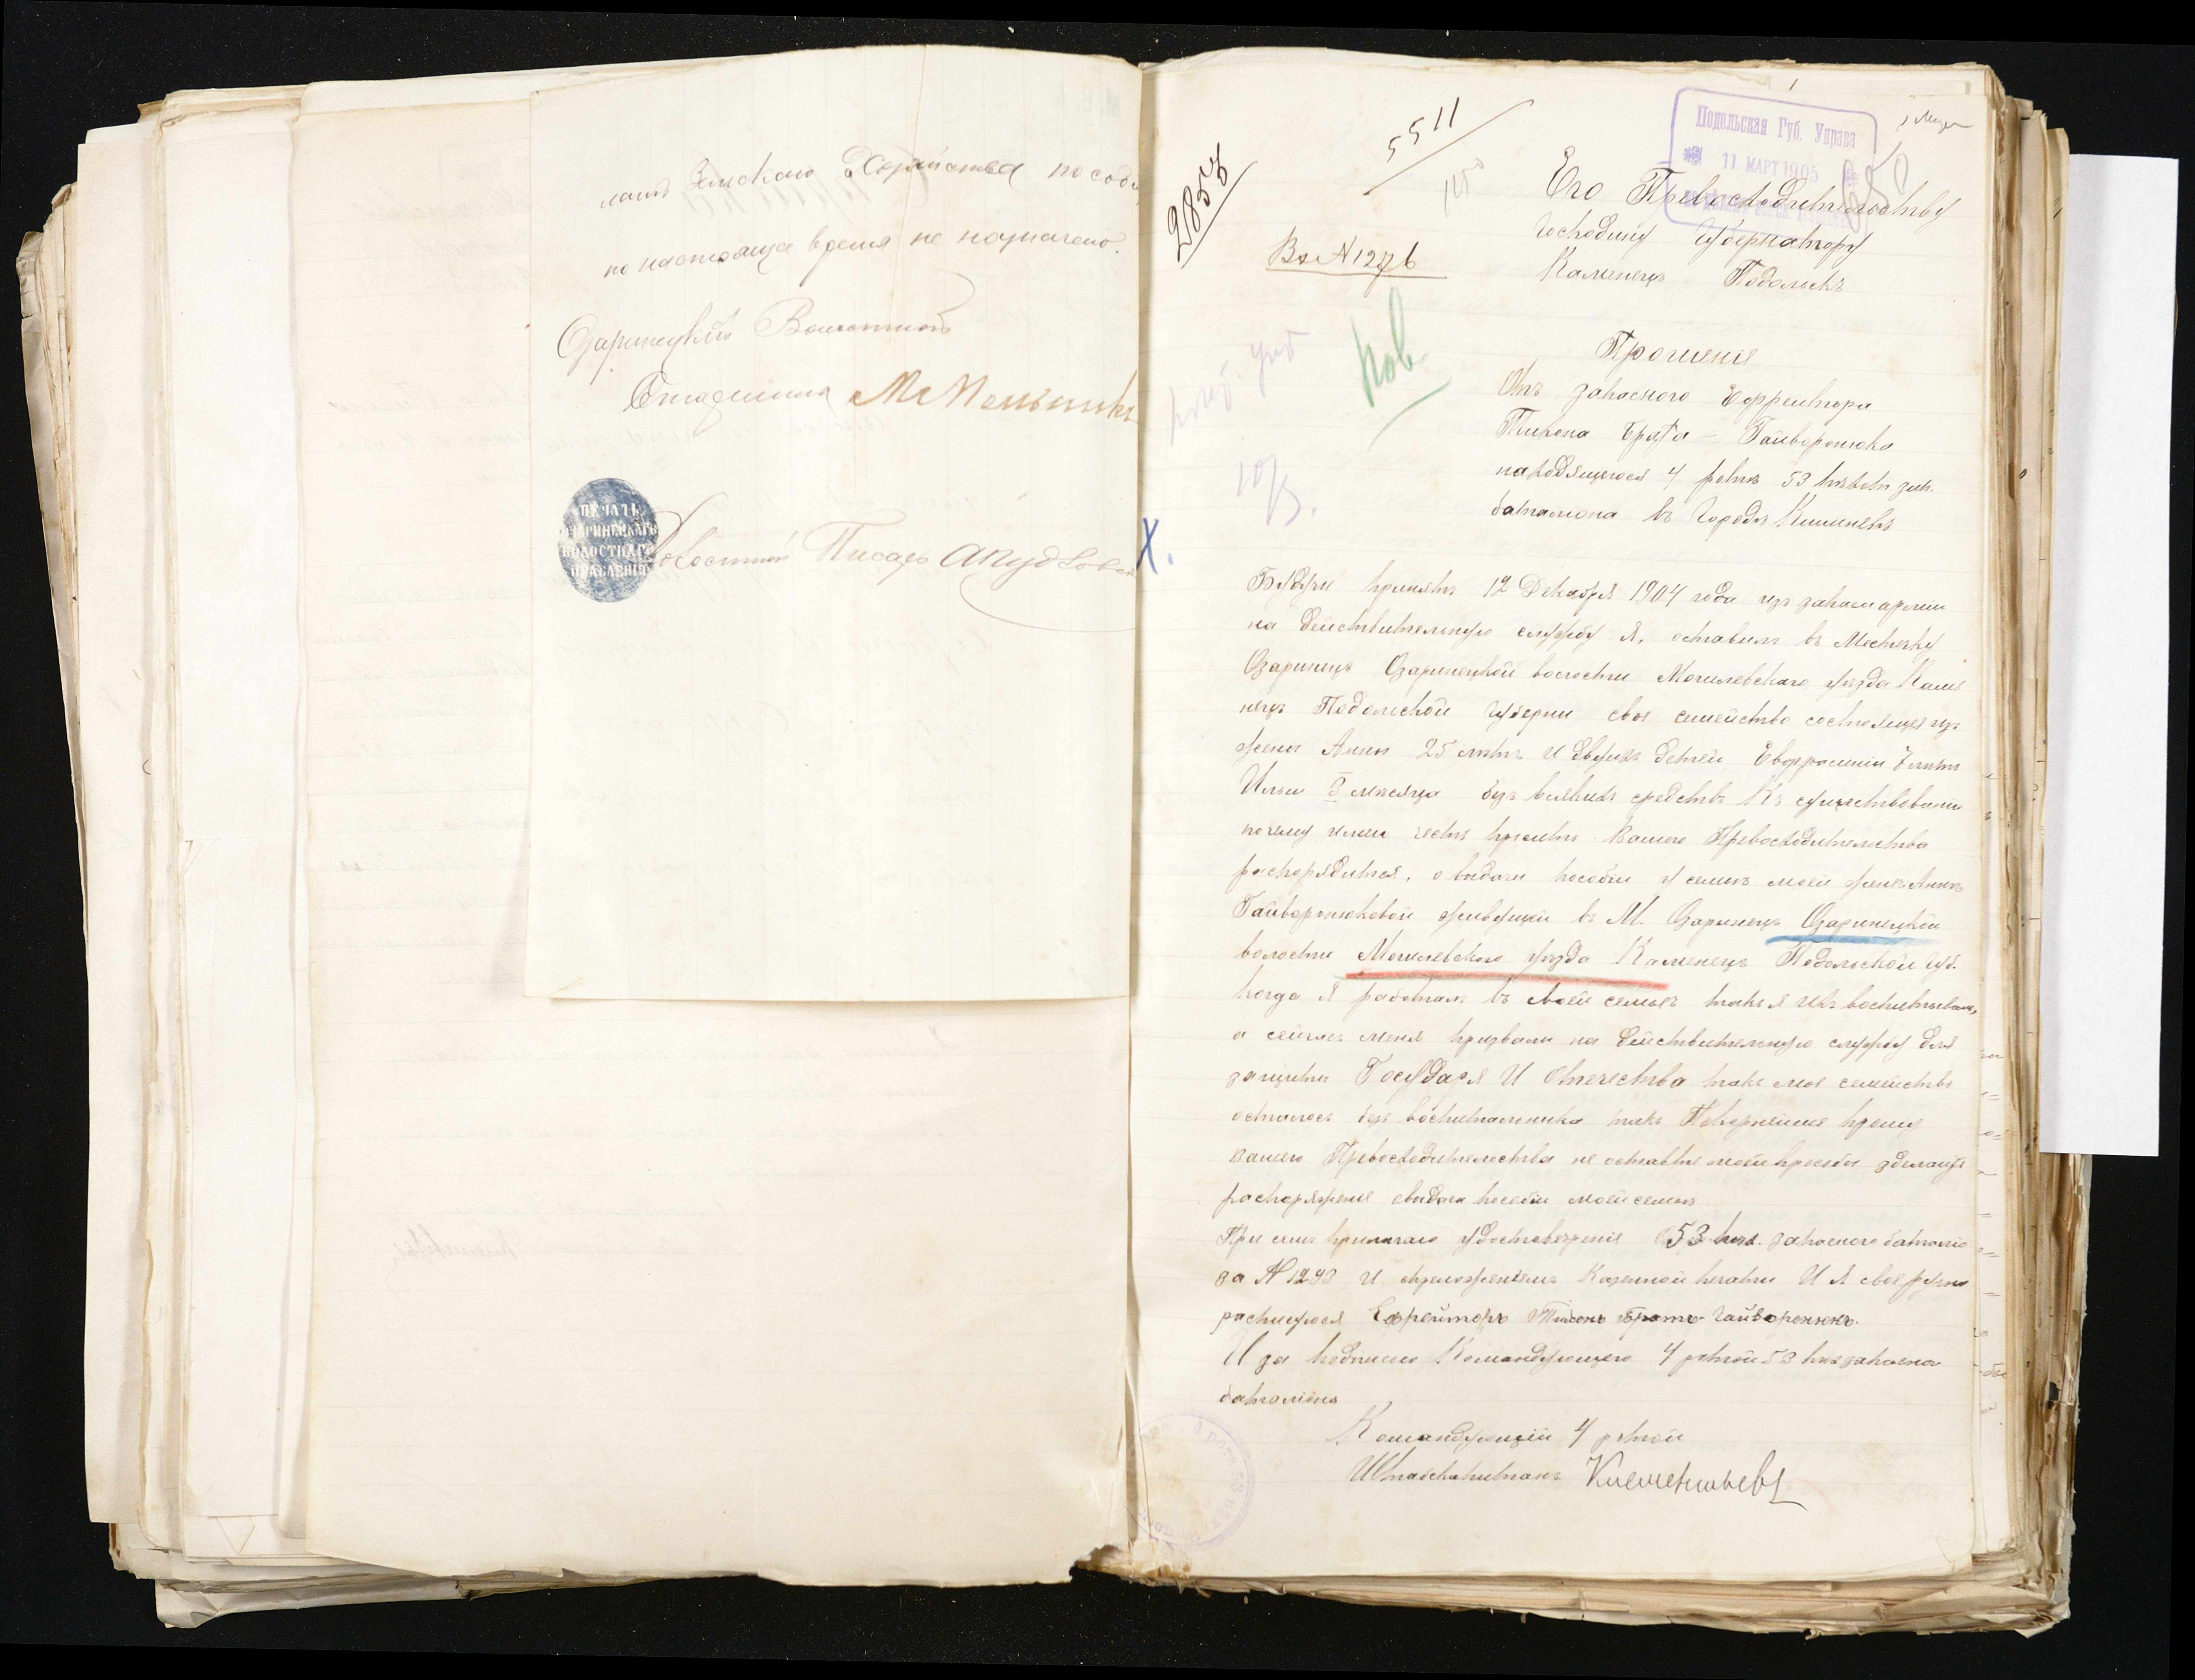 Земского Хозяйства пособі
по настояще время не назначено.
Озаринецкій Волостной
Старшина М Мельникъ
ПЕЧАТЬ
ОЗАРИНЕЦКАГО
ВОЛОСТНАГО
ПРАВЛЕНІЯ
Волостной Писарь
Х.
2853
5511
Подольская Губ. Управа
11. МАРТ 1905
Вх N 1276
Его Превосходительству
Господину Губернатору
Каменецъ Подольскъ
Прошеніе
Отъ запасного Ефрейтора
Тихона Брата - Гайворонюка
находящегося 4 ротѣ 53 пѣхотн зап.
баталиона въ Городѣ Кишиневѣ
Будучи принятъ 12 Декабря 1904 года изъ запаса арміи
на действительную службу я, оставилъ въ Местечку
Озаринецъ Озаринецкой волости Могилевскаго уѣзда Каме
нецъ Подольской Губерни свое семейство состоящея изъ
жены Анны 25 лѣтъ и двухъ детей Евфросинии лѣтъ
Ильи месяца безъ всякихъ средствъ Къ существованію
почему имею честь просить Вашего Превосходительства
распорядится, о выдачи пособіи у семьѣ моей женѣ Аннѣ
Гайворонюковой живущей въ М. Озаринецъ Озаринецкой
волости Могилевскаго уѣзда Каменецъ Подольской Губ.
когда я работалъ въ своей семьѣ такъ я ихъ воспитывалъ,
а сейчасъ меня призвали на действительную службу для
защиты Государя И Отечества такъ мое семейство
осталось безъ воспитальника такъ Покорнейше прошу
вашего Превосходительства не оставте моей просьбы зделайте
распоряжене выдачи пособіи моей семьѣ
При семъ прилагаю удостовѣреніе 53 пѣх. запасного баталіо
за N 1293 и приложеніемъ Казенной печати И Я своеручно
распишуюся Ефрейторъ Тихонъ Братъ-Гайворонюкъ.
И за подписею Командующего 4 ротой 53 пѣх запасно
баталіона
Командующій 4 ротой
Штабскапитанъ Клементьевъ